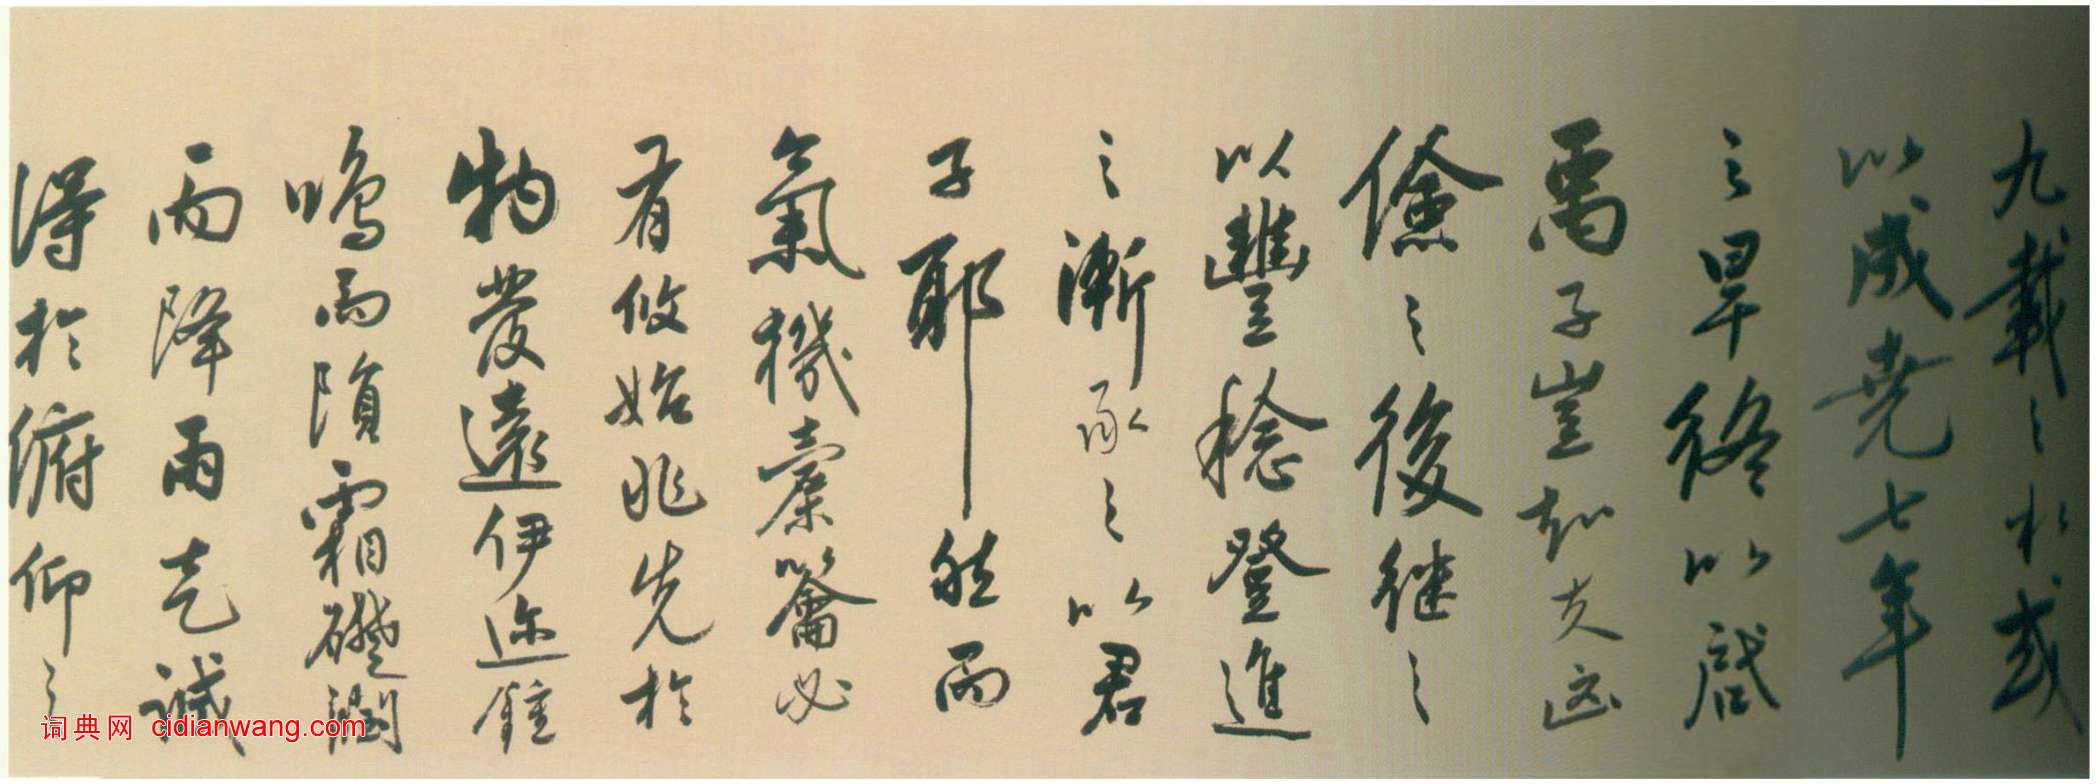 九載之水或
以成堯七年
之旱終以啟
禹子豈知夫凶
儉之後继之
以豐稔登進
之漸承之以君
子耶然而
氣機橐籥必
有攸始兆先於
物發遠伊迩鐘
鳴而隕霜礎潤
而降雨乞誠
得於俯仰之
词典网 cidianwang.com